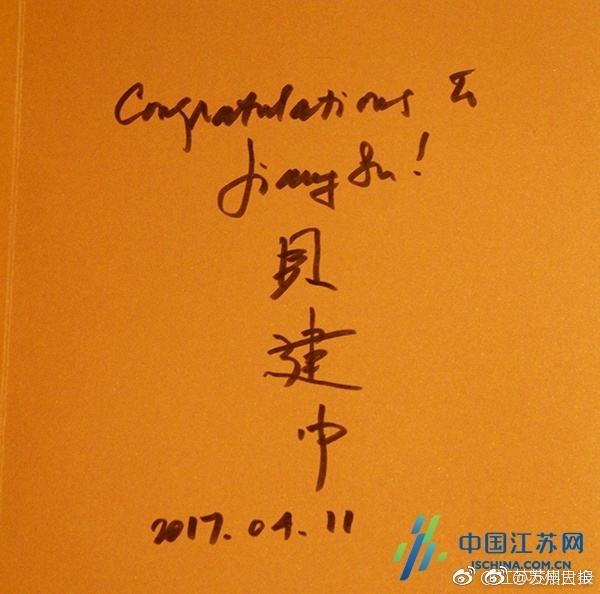 Congratulations to
Jiang Su!
贝
建
中
2017.04.11
中国江苏网
JSCHINA.COM.CN